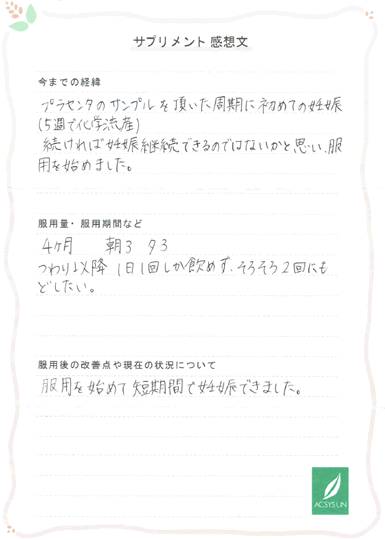 サプリメント 感想文
今までの経緯
プラセンタのサンプルを頂いた周期に初めての妊娠
(5週で化学流産)
続ければ妊娠継続できるのではないかと思い、服
用を始めました。
服用量・服用期間など
4ヶ月 朝3 夕3
つわり以降 1日1回しか飲めず、そろそろ2回にも
どしたい。
服用後の改善点や現在の状況について
服用を始めて短期間で妊娠できました。
ACSYSUN